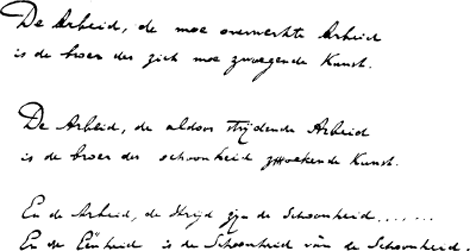 De Arbeid, de moe overwerkte Arbeid
is de broer der zich moe zwoegende Kunst.
De Arbeid, de aldoor strijdende Arbeid
is de broer der schoonheid zoekende Kunst.
En de Arbeid, de Strijd zijn de Schoonheid.......
En de Eénheid is de Schoonheid van de Schoonheid.